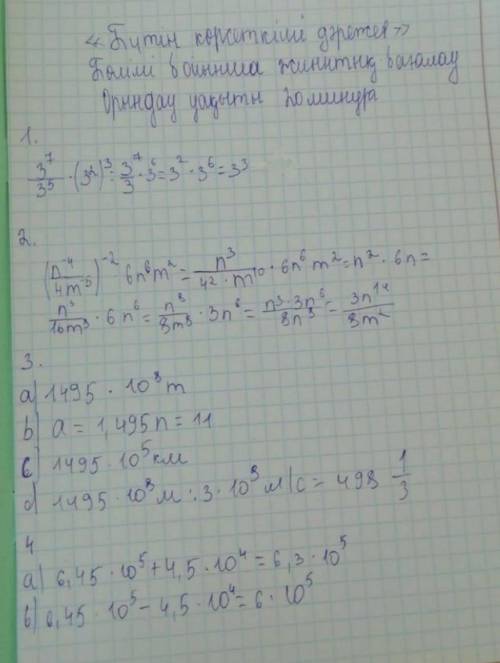 « Бүтін көрсеткішті дәреже »
Бөлімі бойынша жиынтық бағалау
Орындау уақыты 20 минута
1.
3^7/3^5 · (3^2)^3 = 3^7/3 · 3^6 = 3^2 · 3^6 = 3^3
2.
(n^-4/4m^-5)^-2 6n^6m^2 = n^3/4^2 · m^10 · 6n^6 m^2 = n^2 · 6n =
n^3/16m^3 · 6n^6 = n^8/8m^8 · 3n^6 = n^3 · 3n^6/8n^3 = 3n^14/8m^2
3.
a) 1495 · 10^8 m
b) a = 1,495 n = 11
c) 1495 · 10^5 км
d) 1495 · 10^8 м : 3 · 10^8 м/с = 498 1/3
4
a) 6,45 · 10^5 + 4,5 · 10^4 = 6,3 · 10^5
b) 6,45 · 10^5 - 4,5 · 10^4 = 6 · 10^5